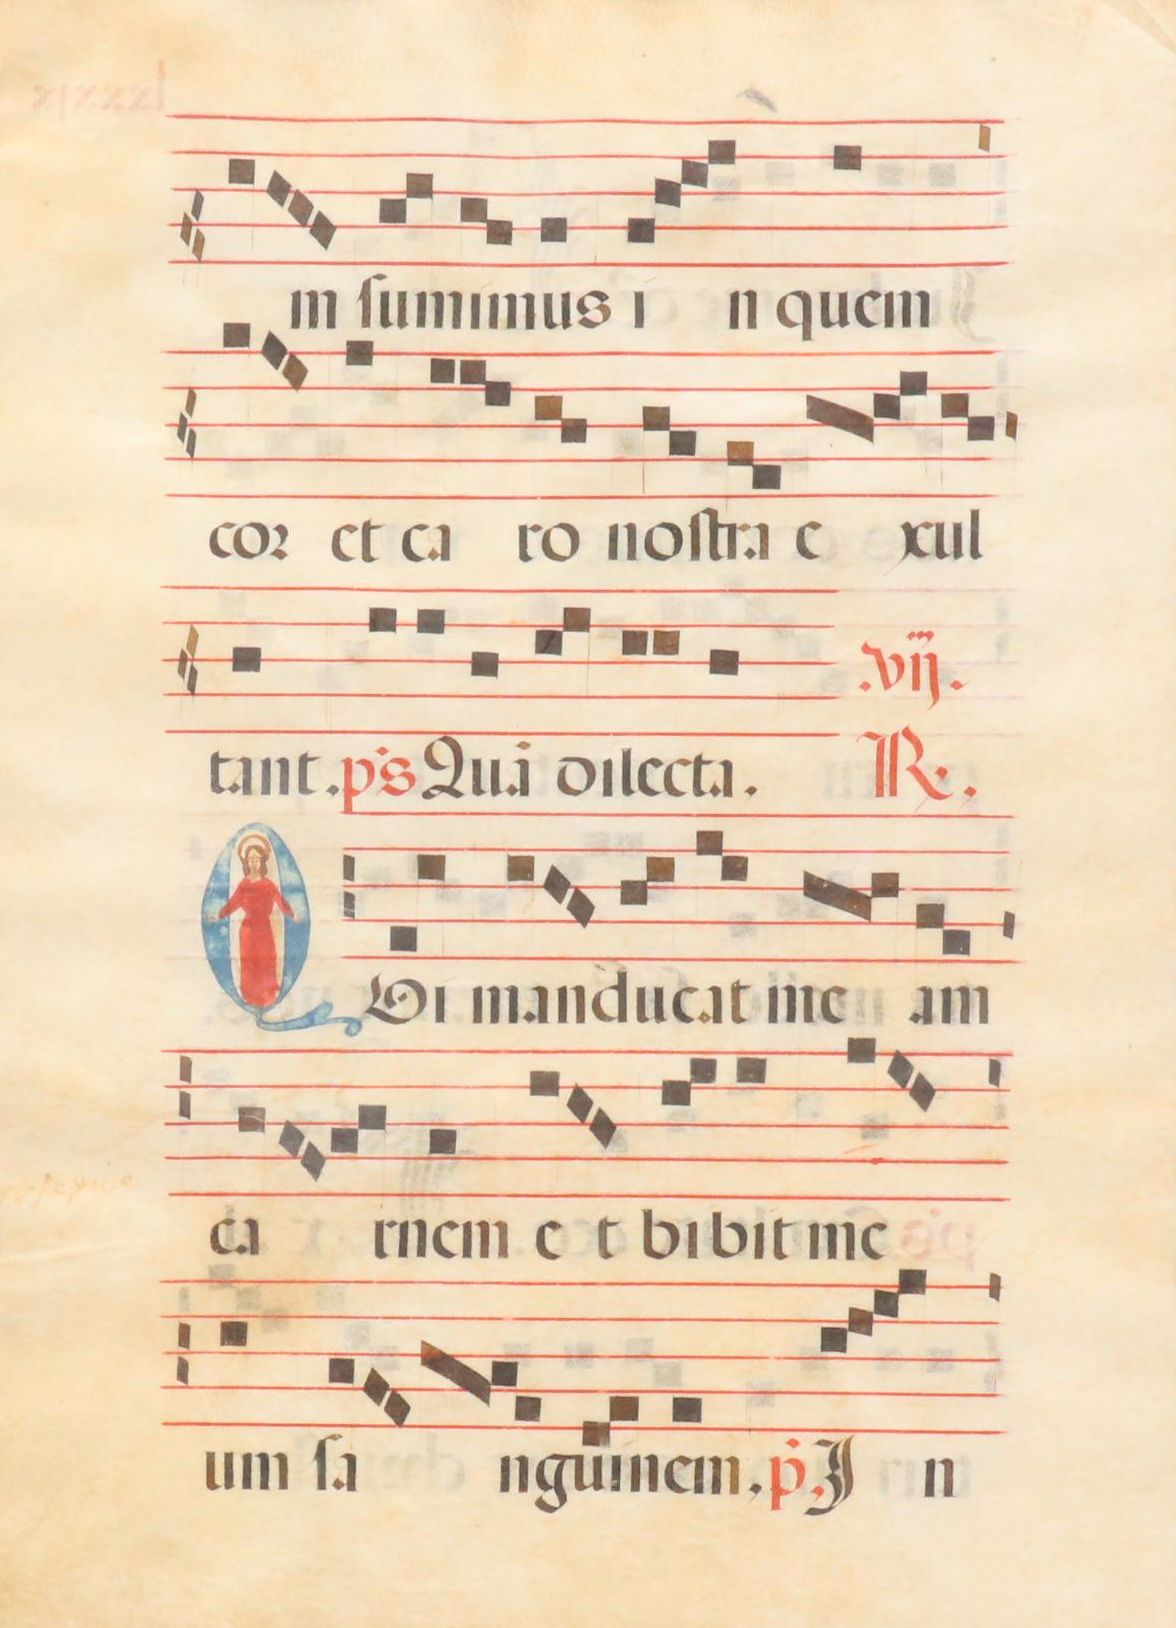 in sumimus i n quem
cor et ca ro nostra e xul
tant. ps Quā dilecta. .vij.
R.
Qui manducat me am
ca rnem e t bibit me
um sa nguinem. p. I n